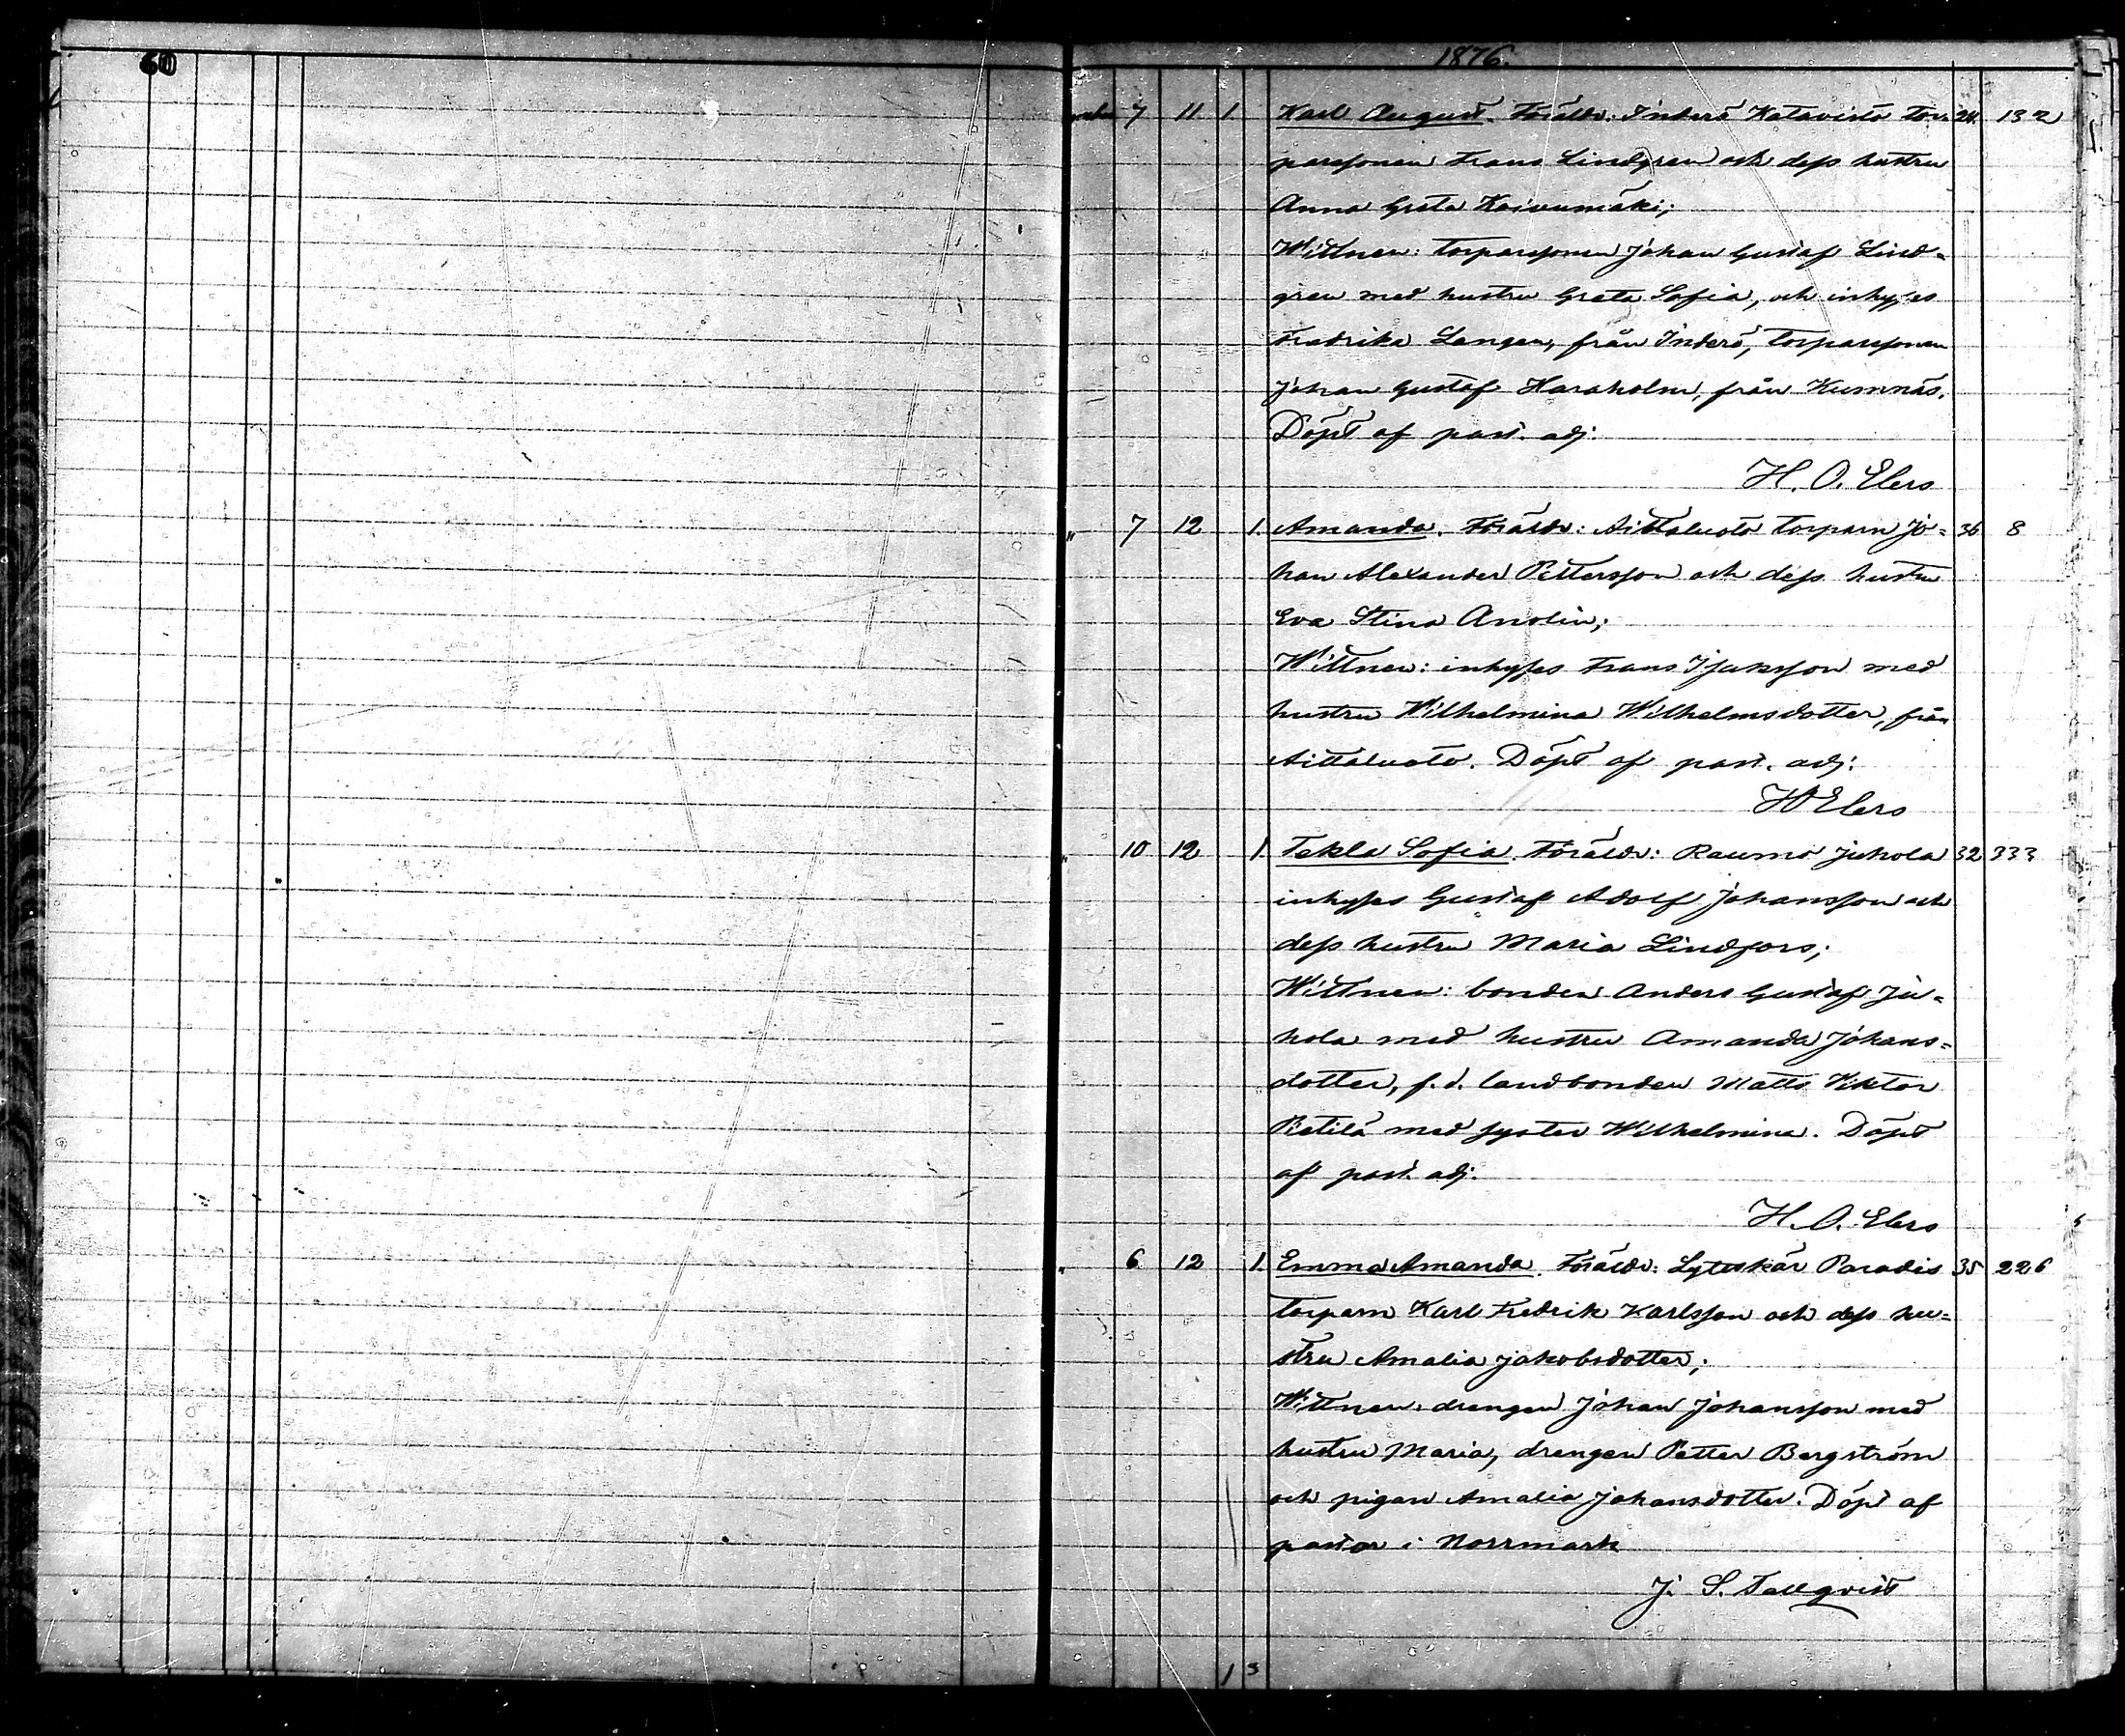 60
1876.
7 11 1. Karl August. Föräldr: Inderö Katavisto tor- 24. 132
paresonen Frans Lindgren och dess hustru
Anna Greta Koivumäki;
Wittnen: torparesonen Johan Gustaf Lind-
gren med hustru Greta Sofia, och inhyses
Fredrika Langen, från Inderö, torparesonen
Johan Gustaf Haraholm, från Kumnäs.
Döpt af past. adj.
H. O. Elers
" 7 12 1. Amanda. Föräldr: Aittaluoto torparn Jo- 36 8
han Alexander Pettersson och dess hustru
Eva Stina Anolin;
Wittnen: inhyses Frans Isaksson med
hustru Wilhelmina Wilhelmsdotter, från
Aittaluoto. Döpt af past. adj.
HOElers
" 10 12 1. Tekla Sofia. Föräldr: Raumo Juhola 32 333
inhyses Gustaf Adolf Johansson och
dess hustru Maria Lindfors;
Wittnen: bonden Anders Gustaf Ju-
hola med hustru Amanda Johans-
dotter, f.d. landbonden Matts Viktor
Pietilä med syster Wilhelmina. Döpt
af past. adj.
H. O. Elers
" 6 12 1. Emma Amanda. Föräldr: Lyttskär Paradis 35 226
torparn Karl Fredrik Karlsson och dess hu-
stru Amalia Jakobsdotter;
Wittnen: drengen Johan Johansson med
hustru Maria, drengen Petter Bergström
och pigan Amalia Johansdotter. Döpt af
pastor i Norrmark
J. S. Tallqvist
1 3